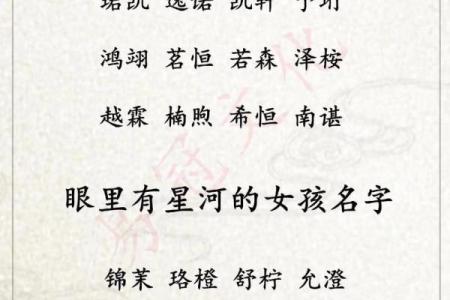 珺凯 逸诺 凯轩 予珩
鸿翊 茗恒 若森 泽桉
越霖 楠煦 希恒 南谌
眼里有星河的女孩名字
锦茉 珞橙 舒柠 允澄